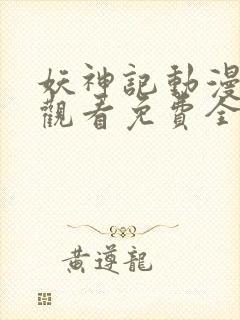 妖神記動漫
觀看免費全
黃遵龍